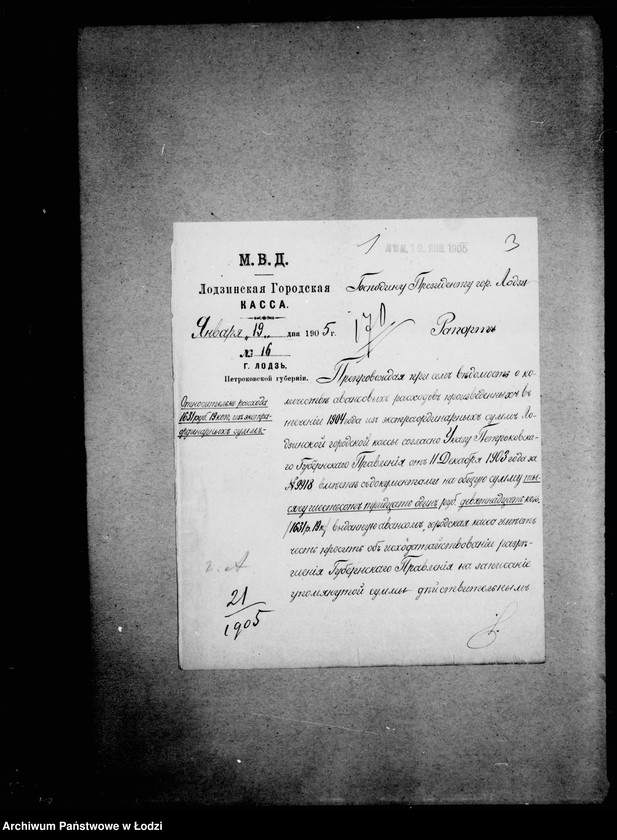 1
3
М. В. Д.
Лодзинская Городская
КАССА.
Января „19„ дня 1905 г.
№ 16
Г. ЛОДЗЬ,
Петроковской губерніи.
Относительно расхода
1631 руб. 19 коп. изъ экстра-
ординарныхъ суммъ.
Господину Президенту гор. Лодзи
170
Рапортъ
Препровождая при семъ вѣдомость о ко-
личествѣ авансовыхъ расходовъ произведенныхъ въ
теченіи 1904 года изъ экстраординарныхъ суммъ Ло-
дзинской городской кассы согласно Указу Петроковска-
го Губернскаго Правленія отъ 11 Декабря 1903 года за
№ 9918 вмѣстѣ съ документами на общую сумму ты-
сячу шестьсотъ тридцать одинъ руб. девятнадцать коп.
/1631 р. 19 к/ выданную авансомъ, городская касса имѣетъ
честь просить объ исходатайствованіи разрѣ-
шенія Губернскаго Правленія на записаніе
упомянутой суммы дѣйствительнымъ
21
1905
Archiwum Państwowe w Łodzi